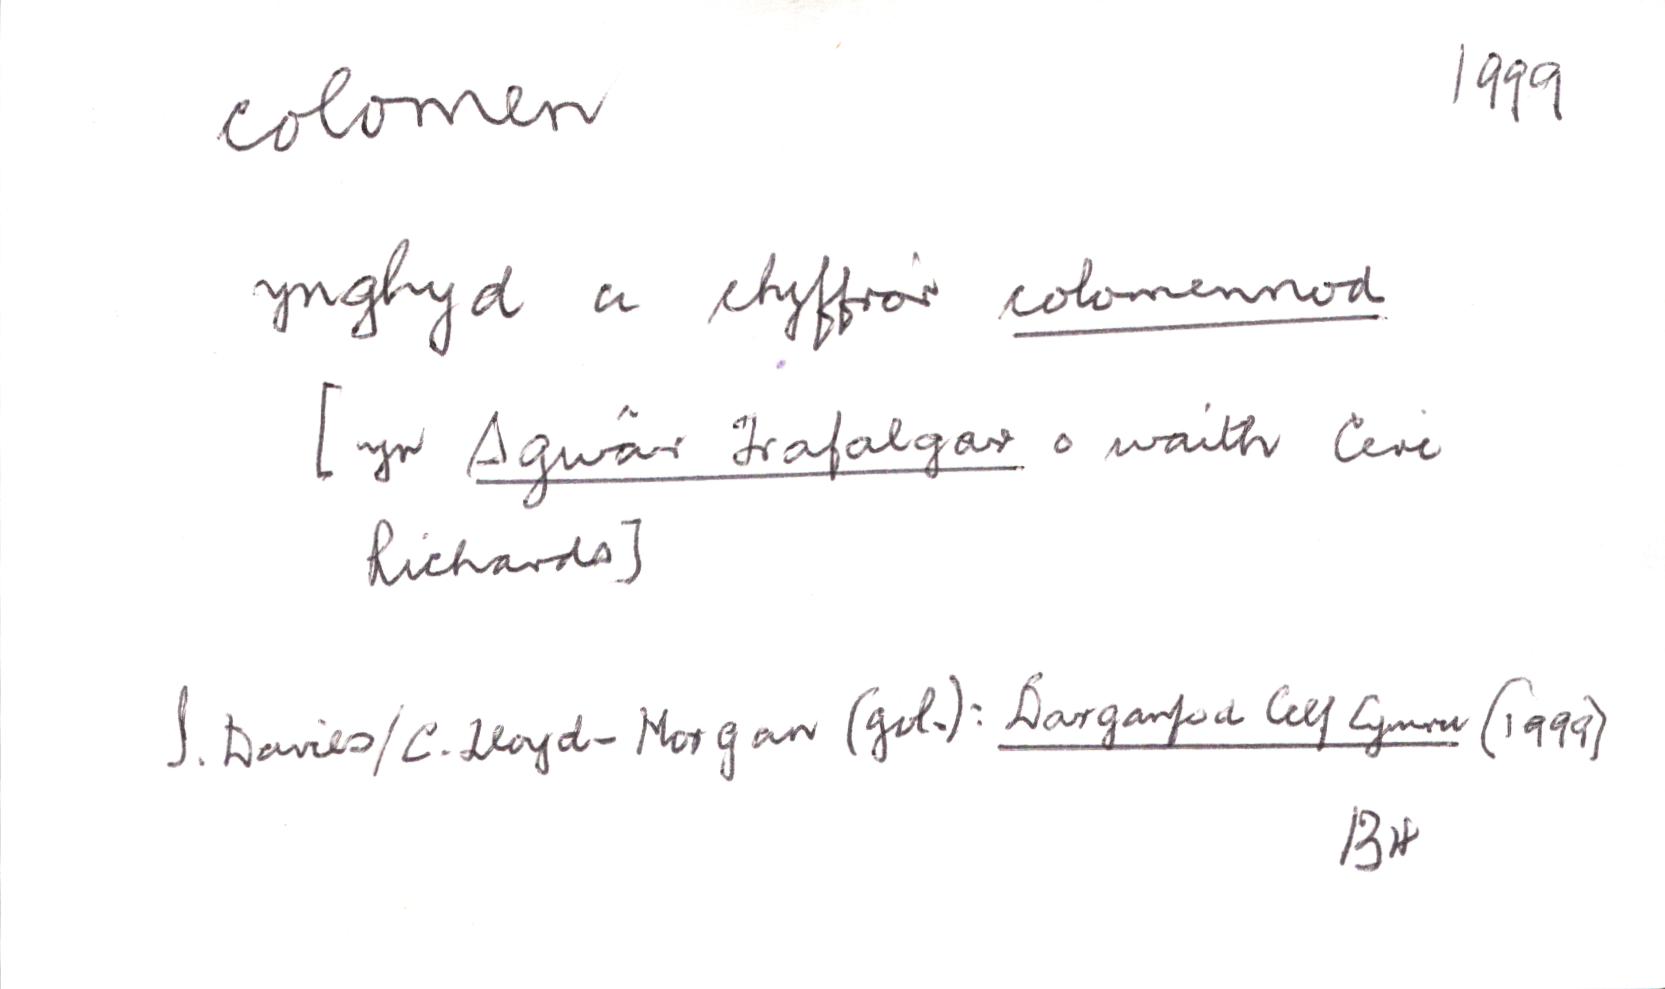 colomen 1999
ynghyd a chyffro'r colomennod
[yn Sgwâr Trafalgar o waith Ceri
Richards]
I. Davies/C. Lloyd-Morgan (gol.): Darganfod Celf Cymru (1999)
134